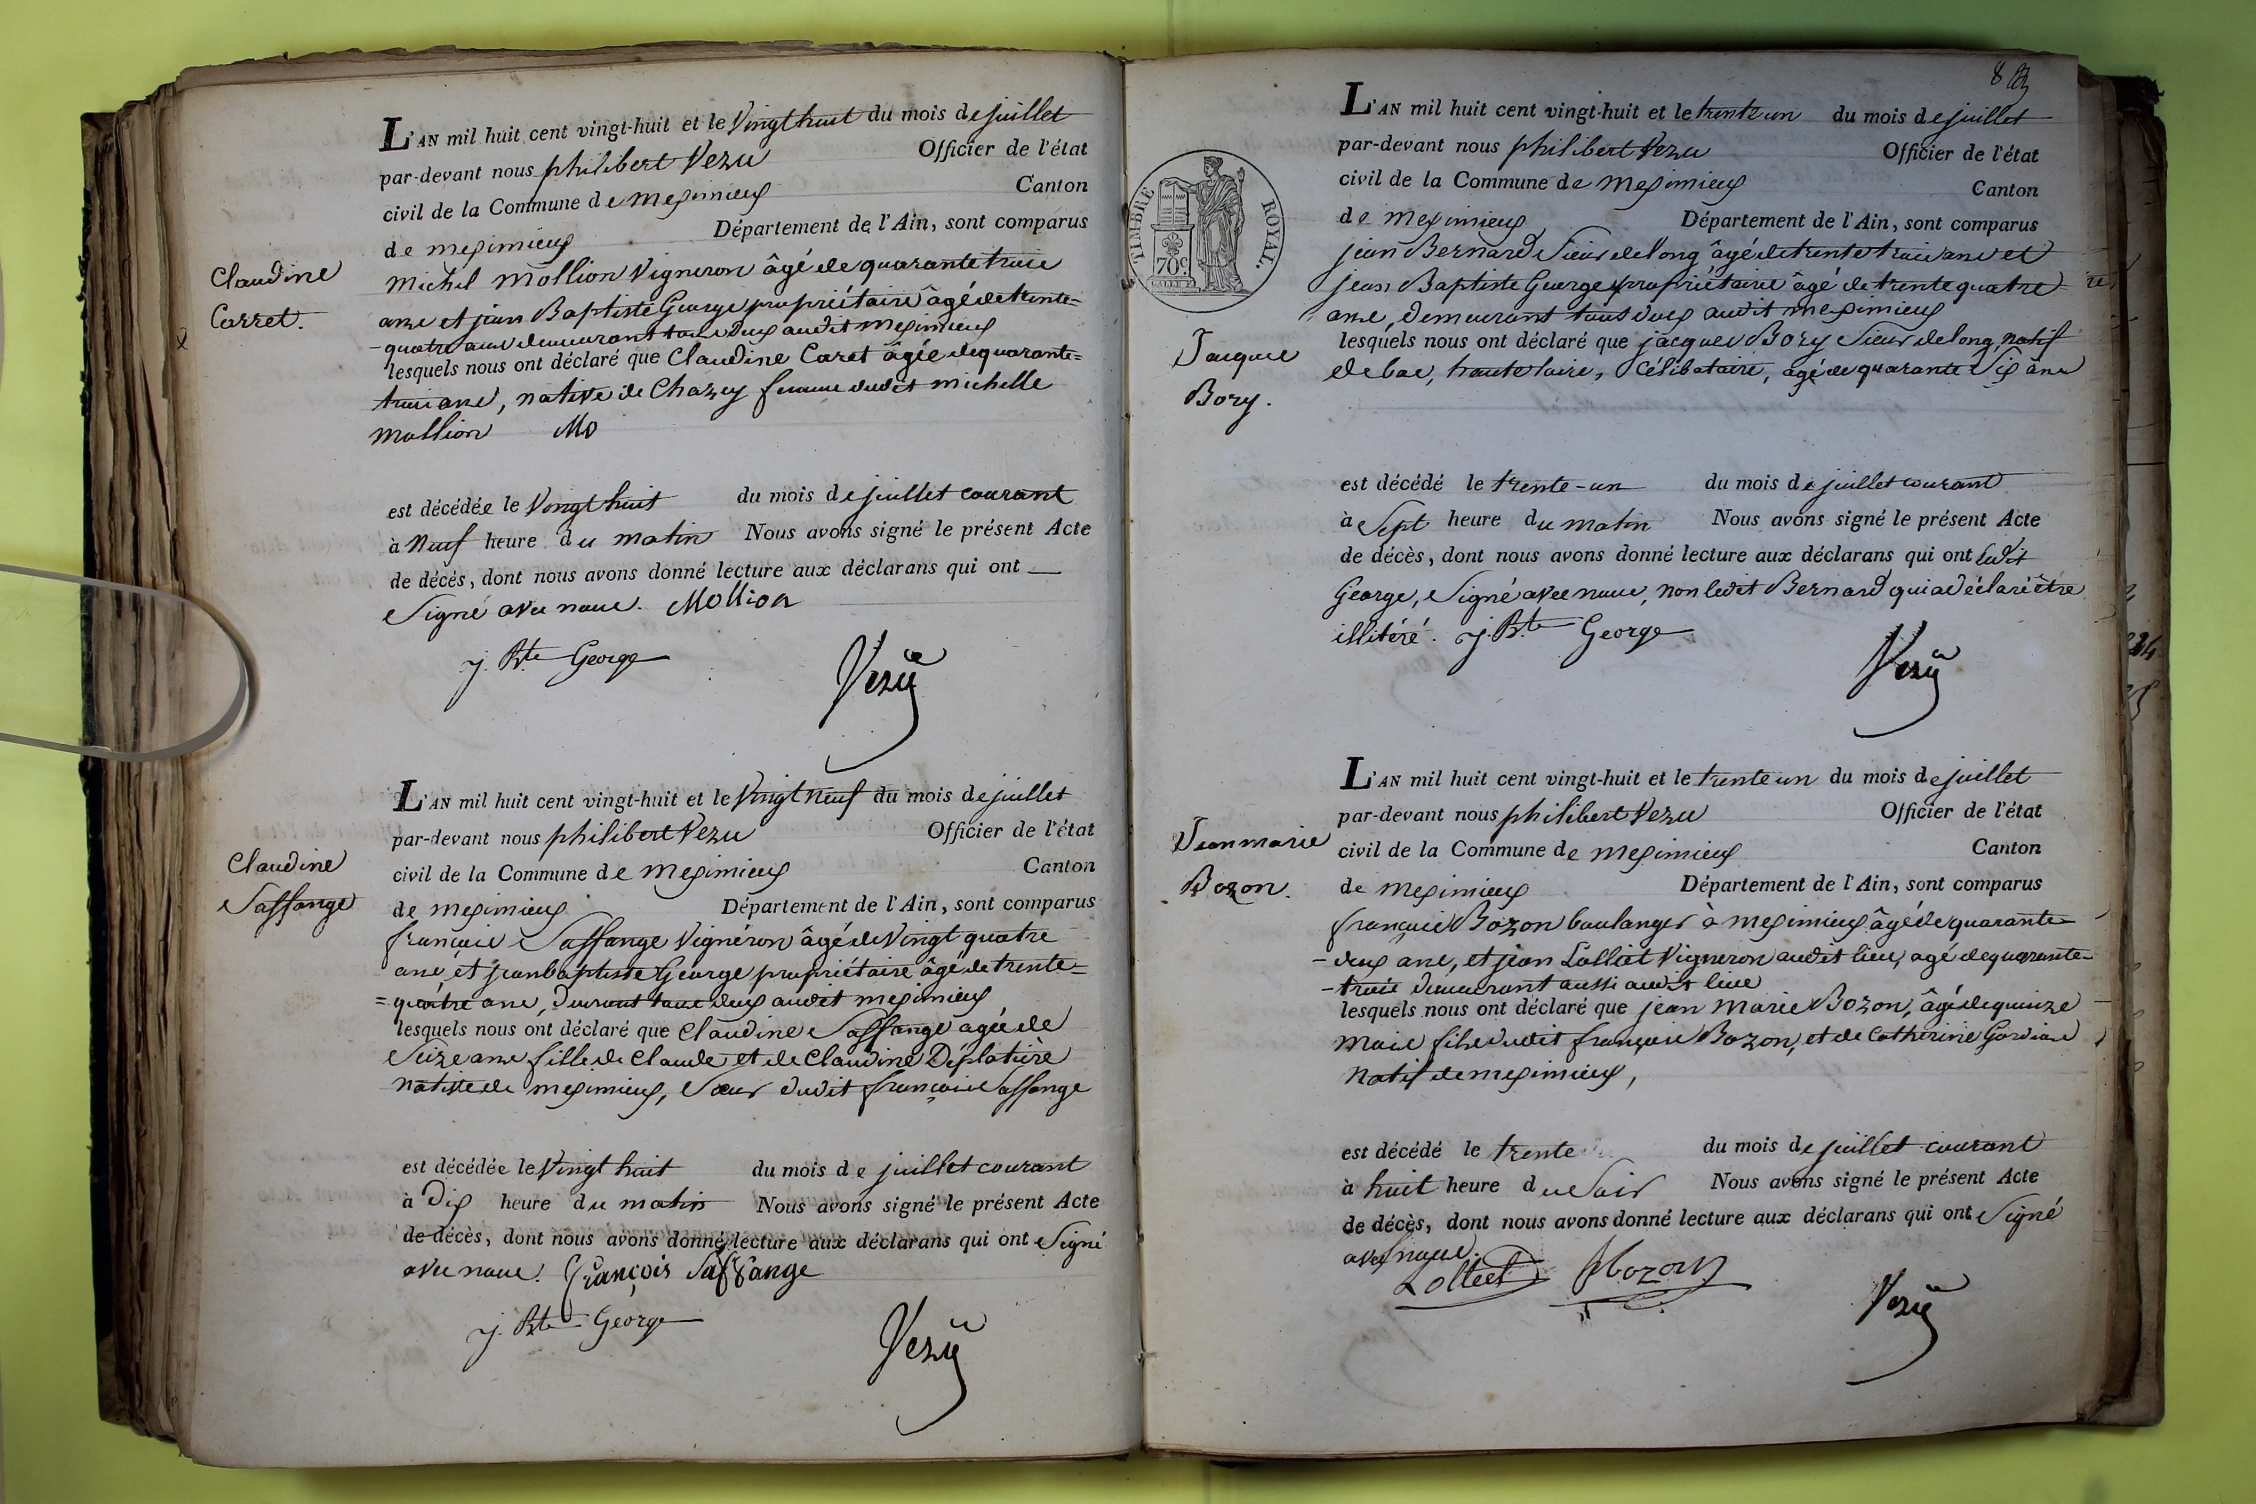 L'AN mil huit cent vingt-huit et le Vingt huit du mois de juillet
par-devant nous philibert Vezu Officier de l'état
civil de la Commune de meximieux Canton
de meximieux Département de l'Ain, sont comparus
Claudine
Carret.
Michel Mollion Vigneron âgé de quarante trois
ans et jean Baptiste George propriétaire âgé de trente=
-quatre ans demeurant tous deux audit meximieux
lesquels nous ont déclaré que Claudine Caret âgée de quarante=
trois ans, native de Chazey femme dudit michelle
mollion Mo
est décédée le Vingt huit du mois de juillet courant
à Neuf heure du matin Nous avons signé le présent Acte
de décès, dont nous avons donné lecture aux déclarans qui ont
Signé avec nous. Mollion
j. Bte George
Vezu
L'AN mil huit cent vingt-huit et le Vingt Neuf du mois de juillet
par-devant nous philibert Vezu Officier de l'état
civil de la Commune de meximieux Canton
Claudine
Saffange
de meximieux Département de l'Ain, sont comparus
françois Saffange Vignéron âgé de Vingt quatre
ans, et jean baptiste George propriétaire âgé de trente=
=quatre ans, dmurant tous deux audit meximieux
lesquels nous ont déclaré que Claudine Saffange agée de
Seize ans fille de Claude et de Claudine Déplatière
native de meximieux, Sœur dudit françois Saffange
est décédée le Vingt huit du mois de juillet courant
à Dix heure du matin Nous avons signé le présent Acte
de décès, dont nous avons donné lecture aux déclarans qui ont Signé
avec nous. François Saffange
j. Bte George
Vezu
8
L'AN mil huit cent vingt-huit et le trente un du mois de juillet
par-devant nous philibert Vezu Officier de l'état
civil de la Commune de meximieux Canton
de meximieux Département de l'Ain, sont comparus
TIMBRE ROYAL.
70c.
jean Bernard Sieur de long âgé de trente trois ans et
jean Baptiste George propriétaire âgé de trente quatre
ans, demeurant tous deux audit meximieux
Jacques
Bory.
lesquels nous ont déclaré que jacques Bory Sieur de long, natif
de bas, haute loire, Célibataire, âgé de quarante Six ans
est décédé le trente-un du mois de juillet courant
à Sept heure du matin Nous avons signé le présent Acte
de décès, dont nous avons donné lecture aux déclarans qui ont ledit
George, Signé avec nous, non ledit Bernard qui a déclaré être
illitéré. j. Bte George
Vezu
L'AN mil huit cent vingt-huit et le trente un du mois de juillet
par-devant nous philibert Vezu Officier de l'état
Jean marie
Bozon.
civil de la Commune de meximieux Canton
de meximieux Département de l'Ain, sont comparus
françois Bozon boulanger à meximieux âgé de quarante
-deux ans, et jean Lolliet Vigneron audit lieu, agé de quarante-
-trois demeurant aussi audit lieu
lesquels nous ont déclaré que jean Marie Bozon, âgé de quinze
mois fils dudit françois Bozon, et de Catherine
Natif de meximieux,
est décédé le trente du mois de juillet courant
à huit heure du Soir Nous avons signé le présent Acte
de décès, dont nous avons donné lecture aux déclarans qui ont Signé
avec nous.
Lolliet Bozon
Vezu